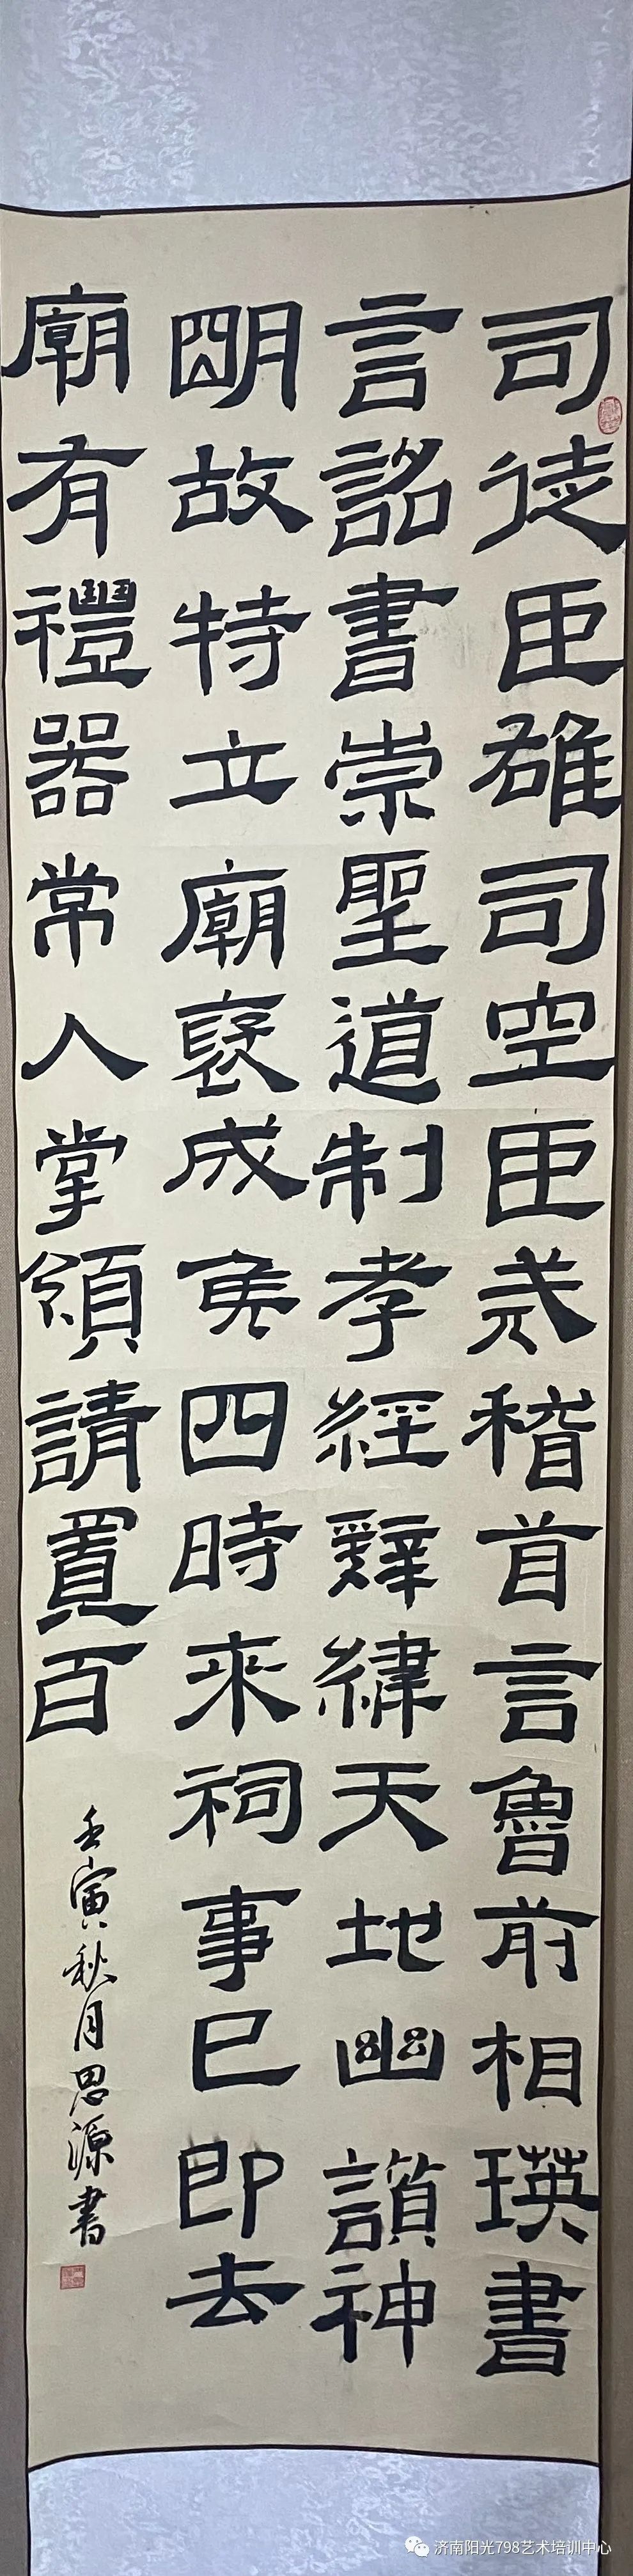 司徒臣雄司空臣戒稽首言魯前相瑛書
言詔書崇聖道制孝經辭律天地幽讚神
明故特立廟襃成侯四時來祠事已即去
廟有禮器常人掌領請置百
壬寅秋月思源書
济南阳光798艺术培训中心